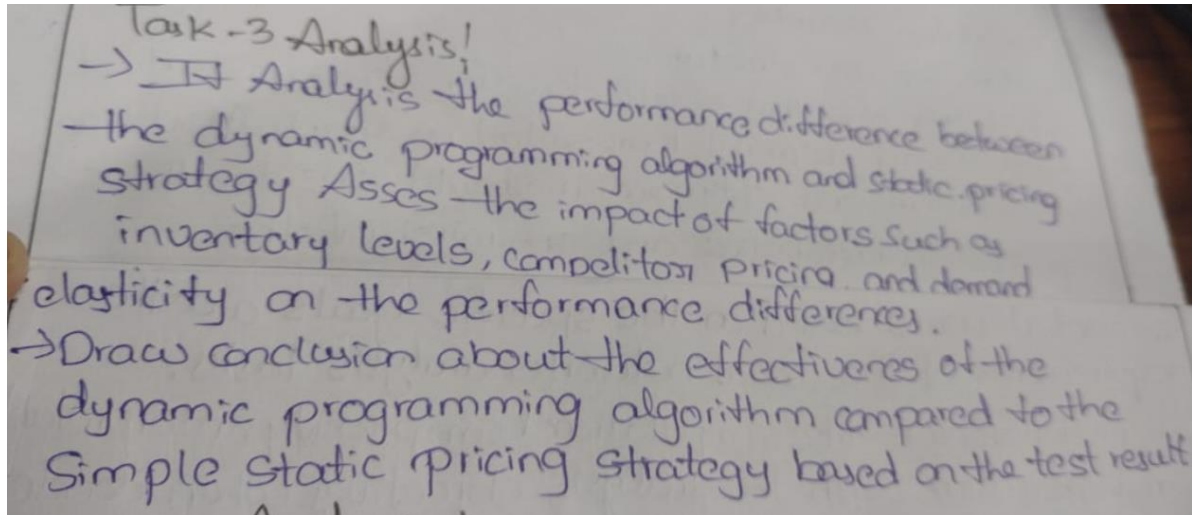 Task-3 Analysis!
→ It Analysis the performance difference between
the dynamic programming algorithm and static pricing
strategy Asses the impact of factors such as
inventary levels, competitor pricing and demand
elasticity on the performance differences.
→ Draw conclusion about the effectivenes of the
dynamic programming algorithm compared to the
Simple static pricing strategy based on the test result